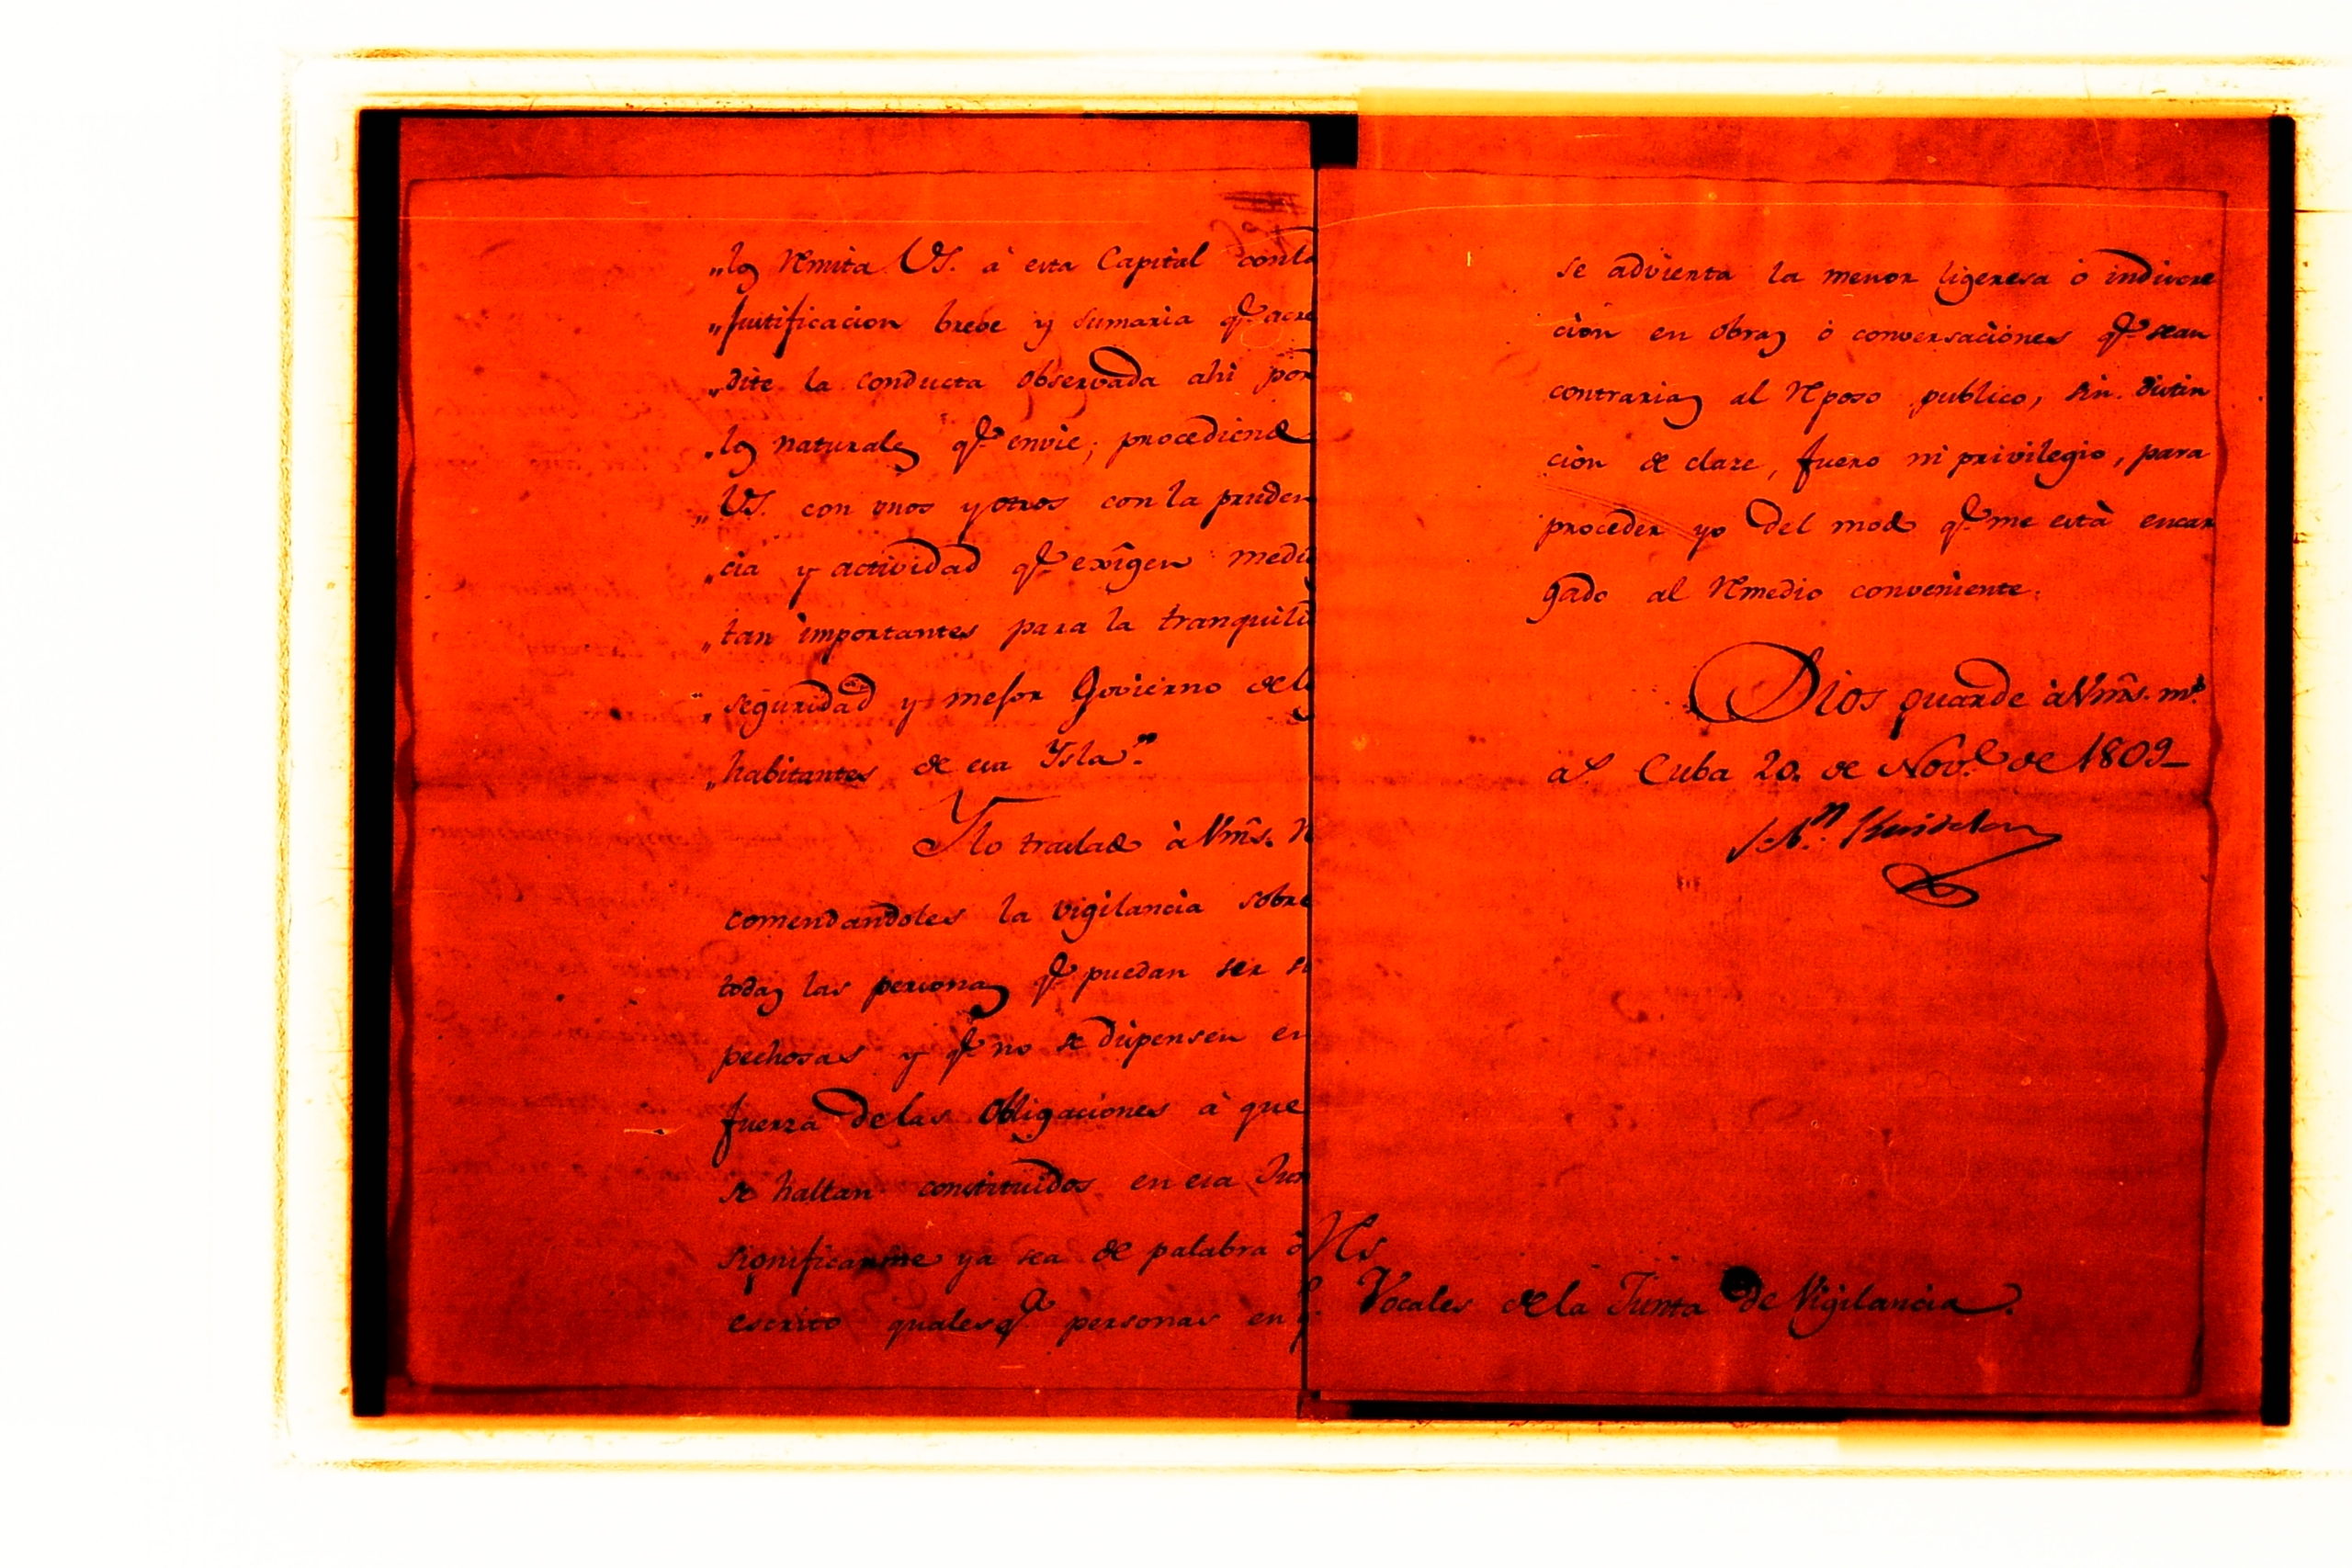 „los Remita VS. à esta Capital conla
„justificacion brebe y sumaria qe. acre
„dite la conducta observada ahi por
„los naturales qe. envie; procediendo
„VS. con unos y otros con la pruden
„cia y actividad qe. exîgen medi
„tan importantes para la tranquili
„seguridad y mejor Govierno delo
„habitantes de esa Ysla."
Y lo traslado à Vms. R
comendandoles la vigilancia sobre
todas las personas qe. puedan ser s
pechosas y qe. no se dispensen en
fuerza delas obligaciones à que
se hallan constituidos en esa Jun
significarme ya sea de palabra ò
escrito qualesqa. personas en q
se advierta la menor ligeresa ò indiscre
cion en obras ò conversaciones qe. sean
contrarias al Reposo publico, sin distin
cion de clase, fuero ni privilegio, para
proceder yo del modo qe. me està encar
gado al Remedio conveniente.
Dios guarde à Vms. ms.
as. Cuba 20. de Nove. de 1809_
Sn. Kindelan
Vocales dela Junta de Vigilancia.